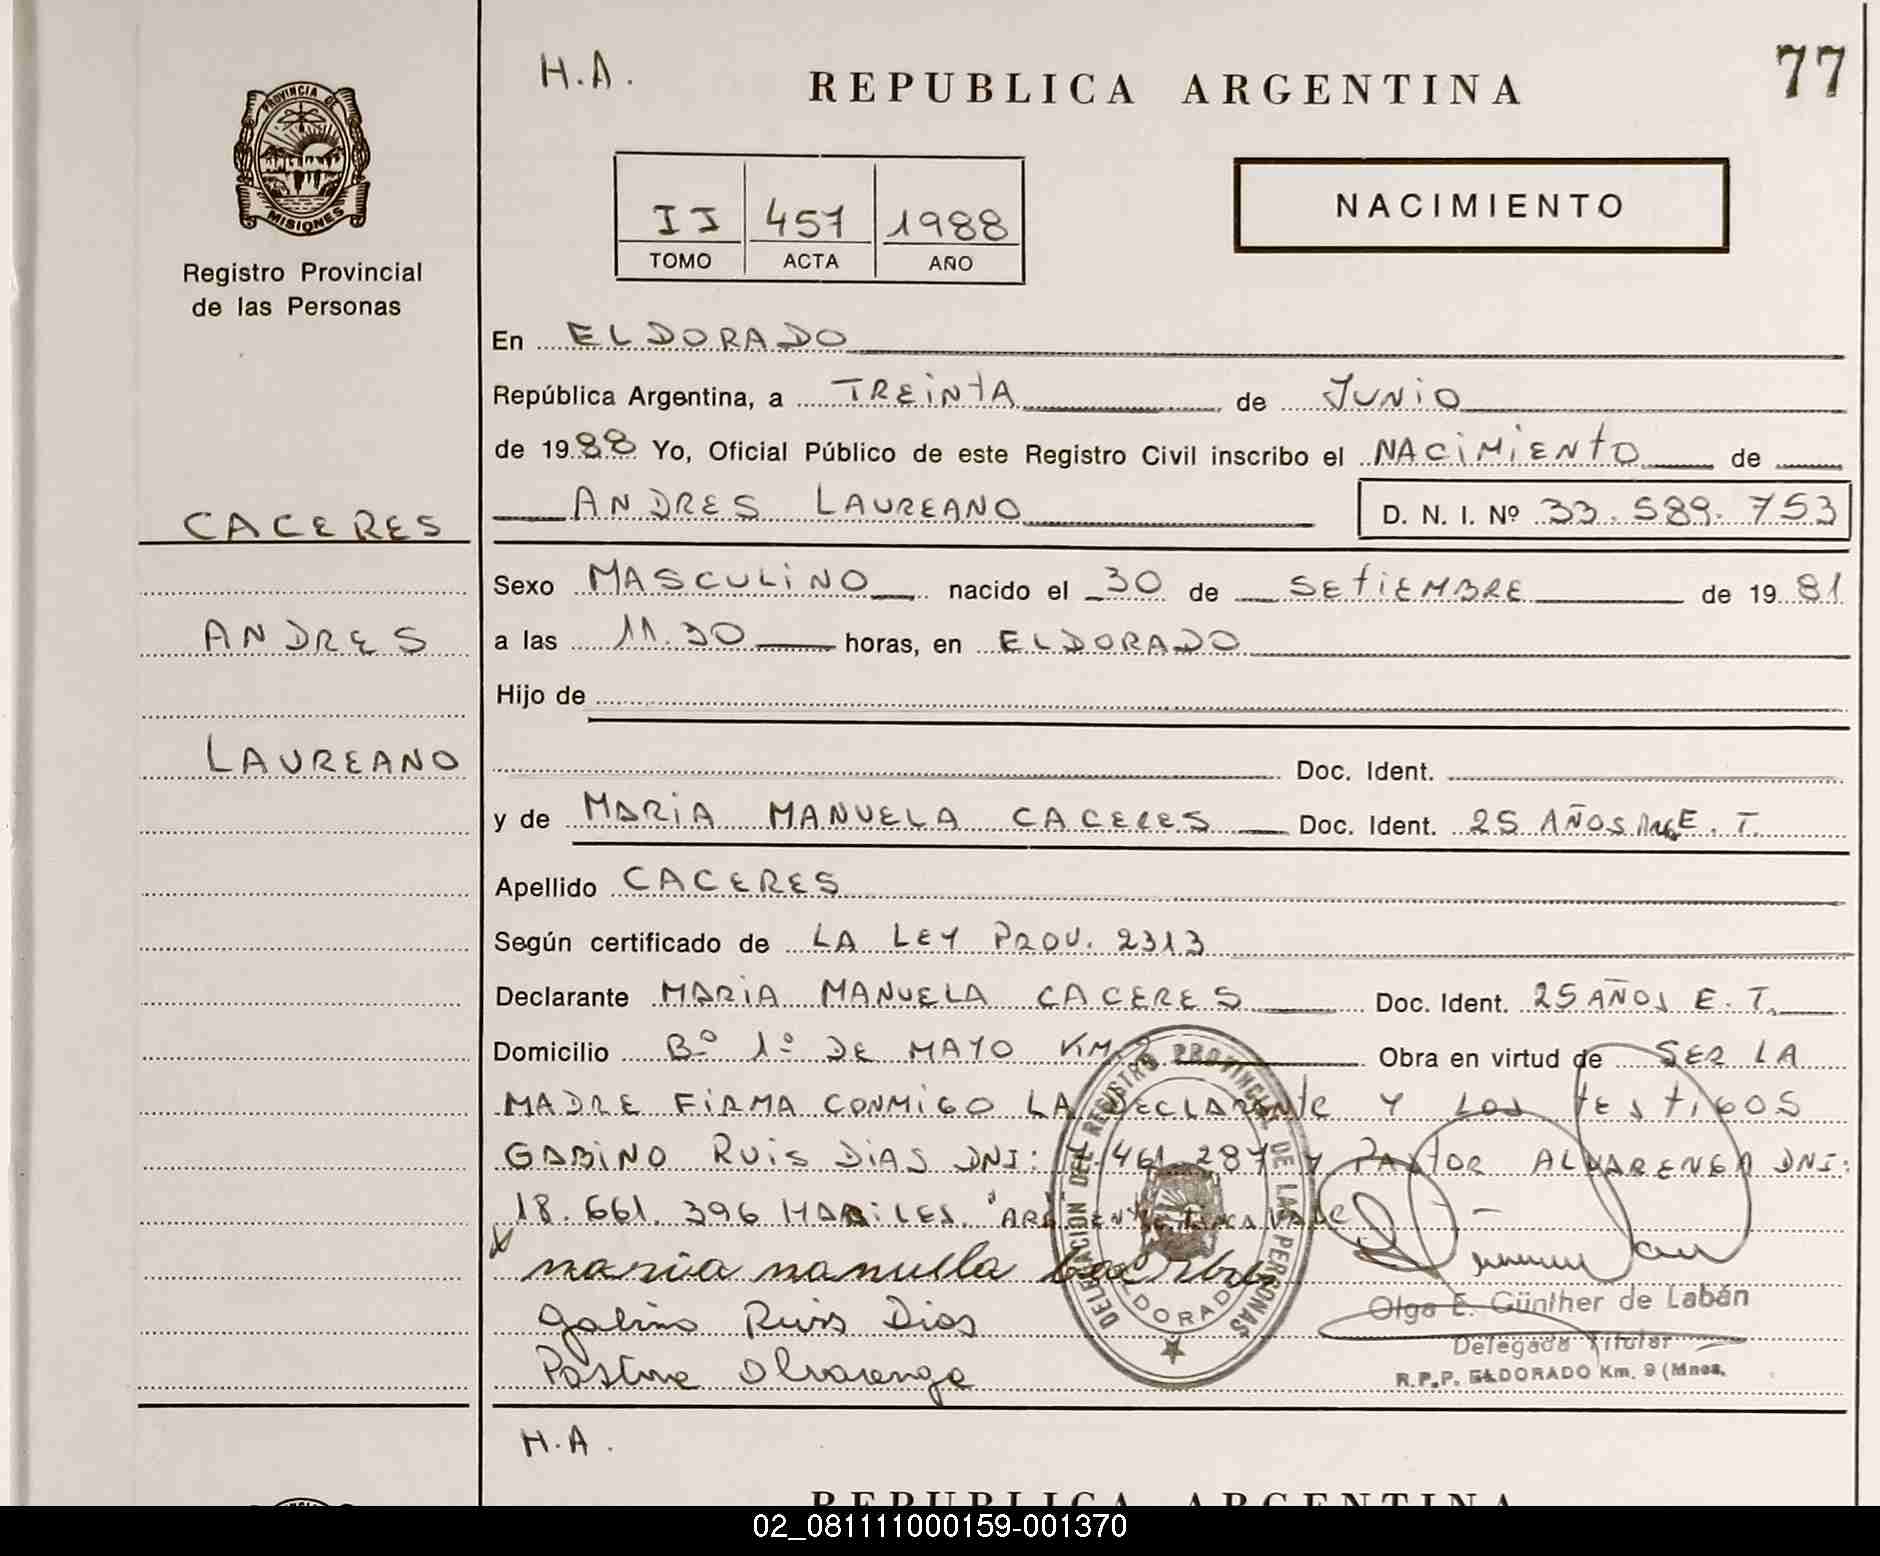 H.A.
REPUBLICA ARGENTINA
77
PROVINCIA DE
MISIONES
Registro Provincial
de las Personas
II 457 1988
TOMO ACTA AÑO
NACIMIENTO
En ELDORADO
República Argentina, a TREINTA de JUNIO
de 1988 Yo, Oficial Público de este Registro Civil inscribo el NACIMIENTO de
CACERES
ANDRES LAUREANO D. N. I. Nº 33.589.753
Sexo MASCULINO nacido el 30 de SETIEMBRE de 1981
ANDRES
a las 11.30 horas, en ELDORADO
Hijo de
LAUREANO
Doc. Ident.
y de MARIA MANUELA CACERES Doc. Ident. 25 AÑOS E. T.
Apellido CACERES
Según certificado de LA LEY PROV. 2313
Declarante MARIA MANUELA CACERES Doc. Ident. 25 AÑOS E. T.
Domicilio Bº 1º DE MAYO KM. Obra en virtud de SER LA
MADRE FIRMA CONMIGO LA DECLARANTE Y LOS TESTIGOS
GABINO RUIS DIAS DNI: Y PASTOR ALVARENGA DNI:
18.661.396 HABILES.
maria manuela
Gabino Ruis Dias
Pastor Alvarenga
DELEGACION DEL REGISTRO PROVINCIAL DE LAS PERSONAS
ELDORADO
Olga E. Günther de Labán
Delegada Titular
R.P.P. ELDORADO Km. 9 (Mnes.
H.A.
REPUBLICA ARGENTINA
02_081111000159-001370